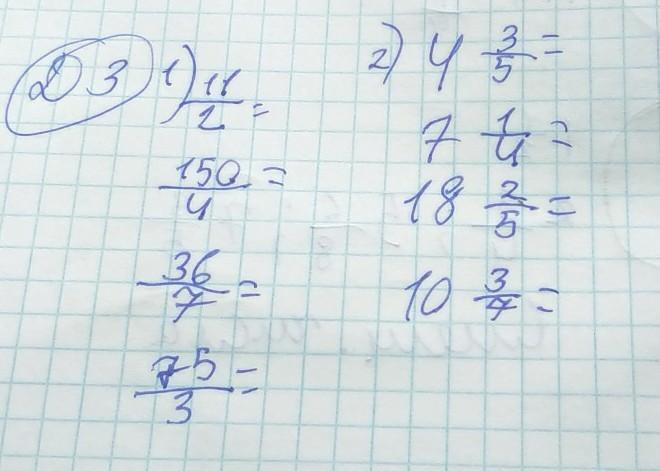 ДЗ 1) 11/2 =
150/4 =
36/7 =
75/3 =
2) 4 3/5 =
7 1/4 =
18 2/5 =
10 3/7 =